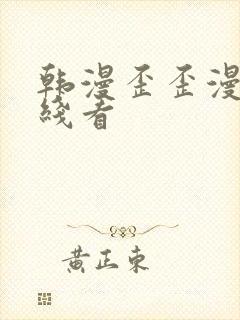 韩漫歪歪漫
线看
黄正东